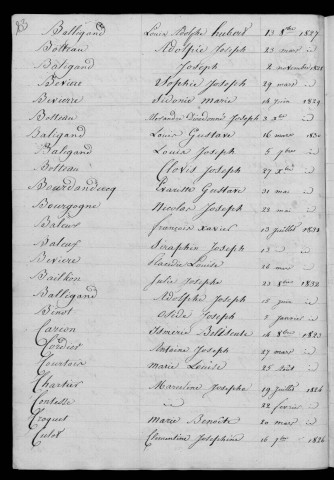 83
Balligand Louis Adolphe hubert 13 8bre 1827
Botteau Adolphe Joseph 23 mars id
Baligand Joseph 2 novembre 1828
Bexiere Sophie Joseph 29 mars id
Bexierre Sidonie marie 14 juin 1829
Botteau Dieudonné Joseph 3 Xbre id
Baligand Louis Gustave 16 mars 1830
Baligand Louis Joseph 5 9bre id
Botteau Clovis Joseph 27 Xbre id
Bourdandecq Gustave 31 mai id
Bourgogne Nicolas Joseph 23 mai id
Baleux françois xavier 13 juillet 1831
Baleux Seraphin Joseph 13 id
Bexiere Placida Louise 26 mars
Baillon Julie Josephe 23 8bre 1832
Ballegand Adolphe Joseph 15 juin id
Binot Joseph 2 janvier id
Carion Ismerie 14 8bre 1823
Cordier Antoine Joseph 27 mars id
Courtois marie Louise 25 août id
Chartier Marceline Josephe 19 juillet 1824
Contesse id 22 fevrier id
Croquet marie Benoite 20 mars id
Culot Clementine Josephine 16 7bre 1826